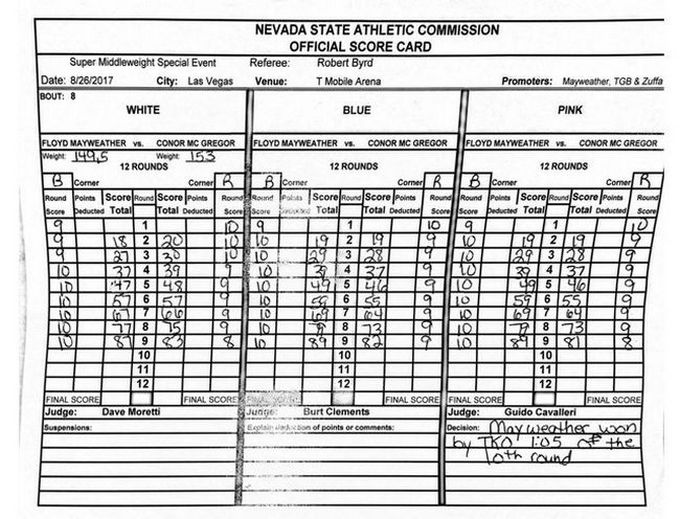 NEVADA STATE ATHLETIC COMMISSION
OFFICIAL SCORE CARD
Super Middleweight Special Event Referee: Robert Byrd
Date: 8/26/2017 City: Las Vegas Venue: T Mobile Arena Promoters: Mayweather, TGB & Zuffa
BOUT: 8
WHITE BLUE PINK
FLOYD MAYWEATHER vs. CONOR MC GREGOR FLOYD MAYWEATHER vs. CONOR MC GREGOR FLOYD MAYWEATHER vs. CONOR MC GREGOR
Weight: 149.5 Weight: 153
12 ROUNDS 12 ROUNDS 12 ROUNDS
B Corner Corner R B Corner Corner R B Corner Corner R
Round Points Score Round Score Points Round Score Points Score Round Score Points Round Round Points Score Round Score Points Round
Score Deducted Total Total Deducted Score Score Deducted Total Total Deducted Score Score Deducted Total Total Deducted Score
9 1 10 9 1 10 9 1 10
9 18 2 20 10 10 19 2 19 9 10 19 2 19 9
9 27 3 30 10 10 29 3 28 9 10 29 3 28 9
10 37 4 39 9 10 39 4 37 9 10 39 4 37 9
10 47 5 48 9 10 49 5 46 9 10 49 5 46 9
10 57 6 57 9 10 59 6 55 9 10 59 6 55 9
10 67 7 66 9 10 69 7 64 9 10 69 7 64 9
10 77 8 75 9 10 79 8 73 9 10 79 8 73 9
10 87 9 83 8 10 89 9 82 9 10 89 9 81 8
10 10 10
11 11 11
12 12 12
FINAL SCORE FINAL SCORE FINAL SCORE FINAL SCORE FINAL SCORE
Judge: Dave Moretti Judge: Burt Clements Judge: Guido Cavalleri
Suspensions: Explain deduction of points or comments: Decision: Mayweather won
by TKO 1:05 of the
10th round